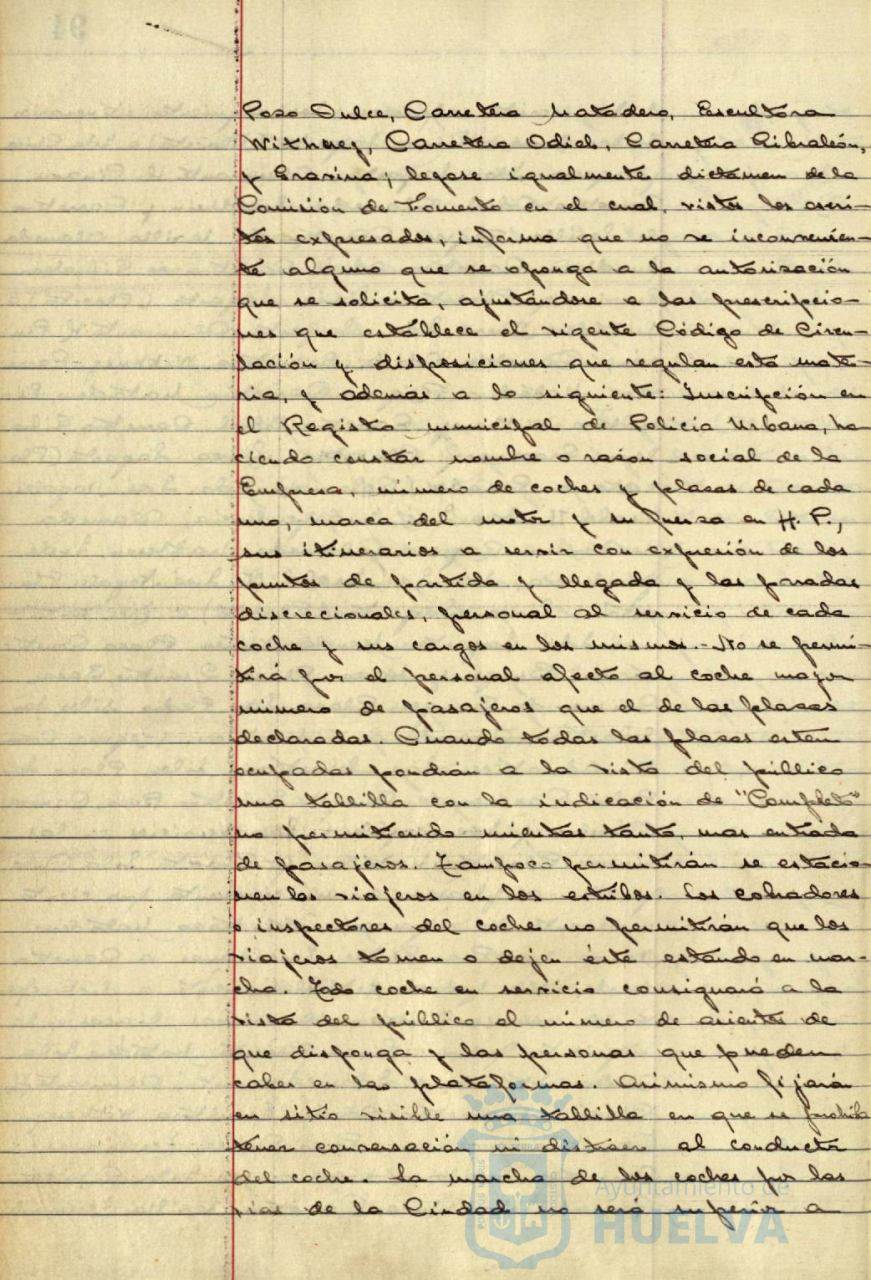 Pozo Dulce, Carretera Matadero, Escultora
Withney, Carretera Odiel, Carretera Gibraleón,
y Gravina; leyose igualmente dictamen de la
Comisión de Fomento en el cual, vistos los escri-
tos expresados, informa que no ve inconvenien-
te alguno que se oponga a la autorización
que se solicita, ajustándose a las prescripcio-
nes que establece el vigente Código de Circu-
lación y disposiciones que regulan esta mate-
ria, y además a lo siguiente: Inscripción en
el Registro municipal de Policía Urbana, ha
ciendo constar nombre o razón social de la
Empresa, número de coches y plazas de cada
uno, marca del motor y su fuerza en H. P.,
sus itinerarios a servir con expresión de los
puntos de partida y llegada y las paradas
discrecionales, personal al servicio de cada
coche y sus cargos en los mismos.- No se permi-
tirá por el personal afecto al coche mayor
número de pasajeros que el de las plazas
declaradas. Cuando todas las plazas esten
ocupadas pondrán a la vista del público
una tablilla con la indicación de "Completo"
no permitiendo mientras tanto, mas entrada
de pasajeros. Tampoco permitirán se estacio-
nen los viajeros en los estribos. Los cobradores
o inspectores del coche no permitirán que los
viajeros tomen o dejen éste estando en mar-
cha. Todo coche en servicio consignará a la
vista del público el número de asientos de
que disponga y las personas que pueden
caber en las plataformas. Asimismo fijará
en sitio visible una tablilla en que se prohiba
tener conversación ni distraer al conductor
del coche. La marcha de los coches por las
vias de la Ciudad no será superior a
Ayuntamiento de
HUELVA